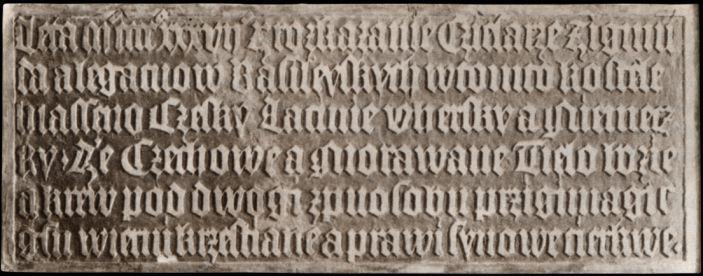 Leta mccccxxxvii Z rozkazanie Ciesarze Zigmu
da a legatuow Basileyskych w tomto kostele
hlasseno Czesky Latinie Vhersky a Niemecz
ky · Ze Czechowe a Morawane Tielo bozie
a krew pod dwogi zpuosobu przigimagic
gsu wierni krzestiane a prawi synowe cierkwe.